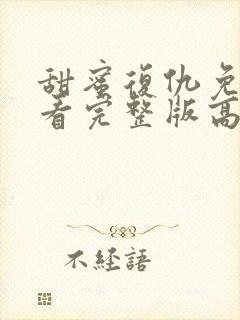 甜蜜復仇免
看完整版高
不經語